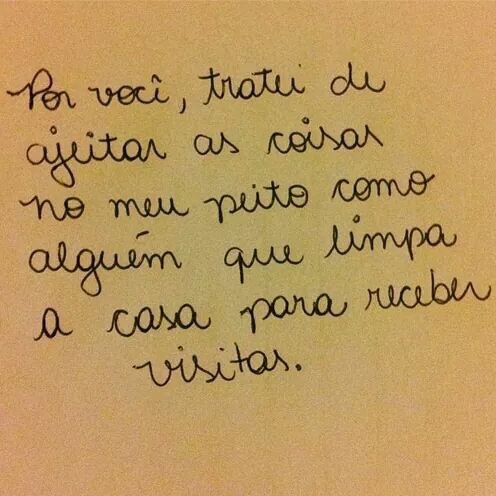 Por você, tratei de
ajeitar as coisas
no meu peito como
alguém que limpa
a casa para receber
visitas.